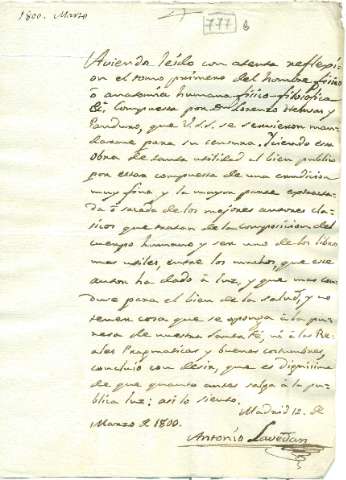 1800. Marzo
777 6
Aviendo leido con atenta reflexi-
on el tomo primero del hombre fisico
o anatomia humana fisico-filosofica
&. compuesta por Dn Lorenzo Hervas y
Panduro, que V.S.S. se sirvieron man-
darme para su censura. Siendo esta
obra de tanta utilidad al bien publico
por estar compuesta de una erudicion
muy fina y la mayor parte extracta-
da ó sacada de los mejores autores cla-
sicos que tratan de la composicion del
cuerpo humano y ser uno de los libros
mas utiles, entre los muchos, que este
autor ha dado à luz, y que mas con-
duce para el bien de la salud, y no
tener cosa que se oponga à la pu-
reza de nuestra Santa fé, ni à las Rea-
les Pragmaticas y buenas costumbres,
concluio con desir, que es dignisima
de que quanto antes salga à la pu-
blica luz: asi lo siento.
Madrid 12. de
Marzo de 1800.
Antonio Lavedan